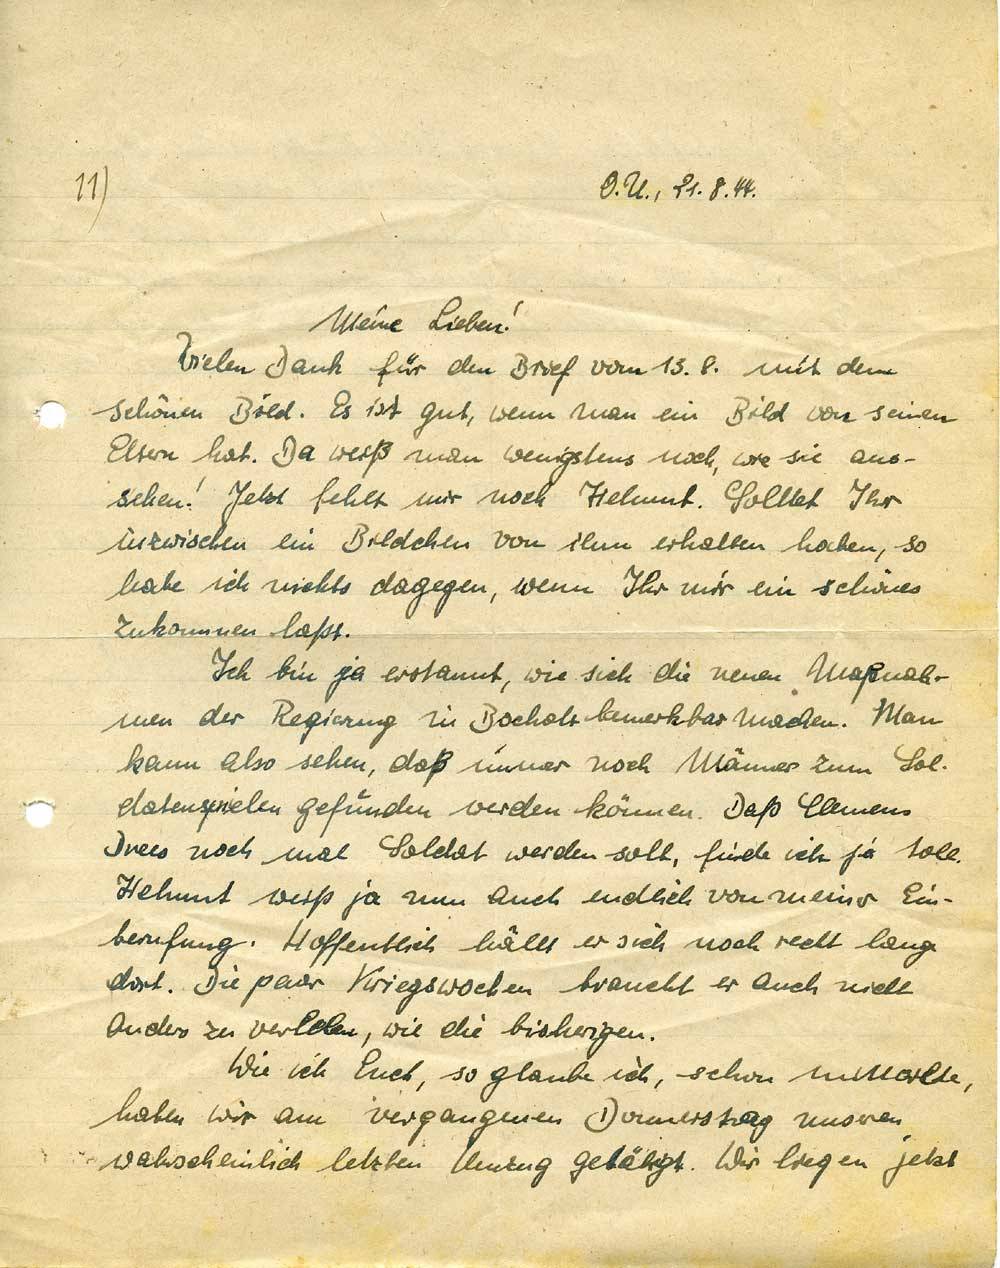 11)
O.U., 21.8.44.
Meine Lieben!
Vielen Dank für den Brief vom 13.8. mit dem
schönen Bild. Es ist gut, wenn man ein Bild von seinen
Eltern hat. Da weiß man wenigstens noch, wie sie aus-
sehen! Jetzt fehlt mir noch Helmut. Solltet Ihr
inzwischen ein Bildchen von ihm erhalten haben, so
habe ich nichts dagegen, wenn Ihr mir ein schönes
zukommen laßt.
Ich bin ja erstaunt, wie sich die neuen Maßnah-
men der Regierung in Bocholt bemerkbar machen. Man
kann also sehen, daß immer noch Männer zum Sol-
datenspielen gefunden werden können. Daß Clemens
Drees noch mal Soldat werden soll, finde ich ja toll.
Helmut weiß ja nun auch endlich von meiner Ein-
berufung. Hoffentlich hällt er sich noch recht lange
dort. Die paar Kriegswochen braucht er auch nicht
anders zu verleben, wie die bisherigen.
Wie ich Euch, so glaube ich, schon mitteilte,
haben wir am vergangenen Donnerstag unseren
wahrscheinlich letzten Umzug getätigt. Wir liegen jetzt